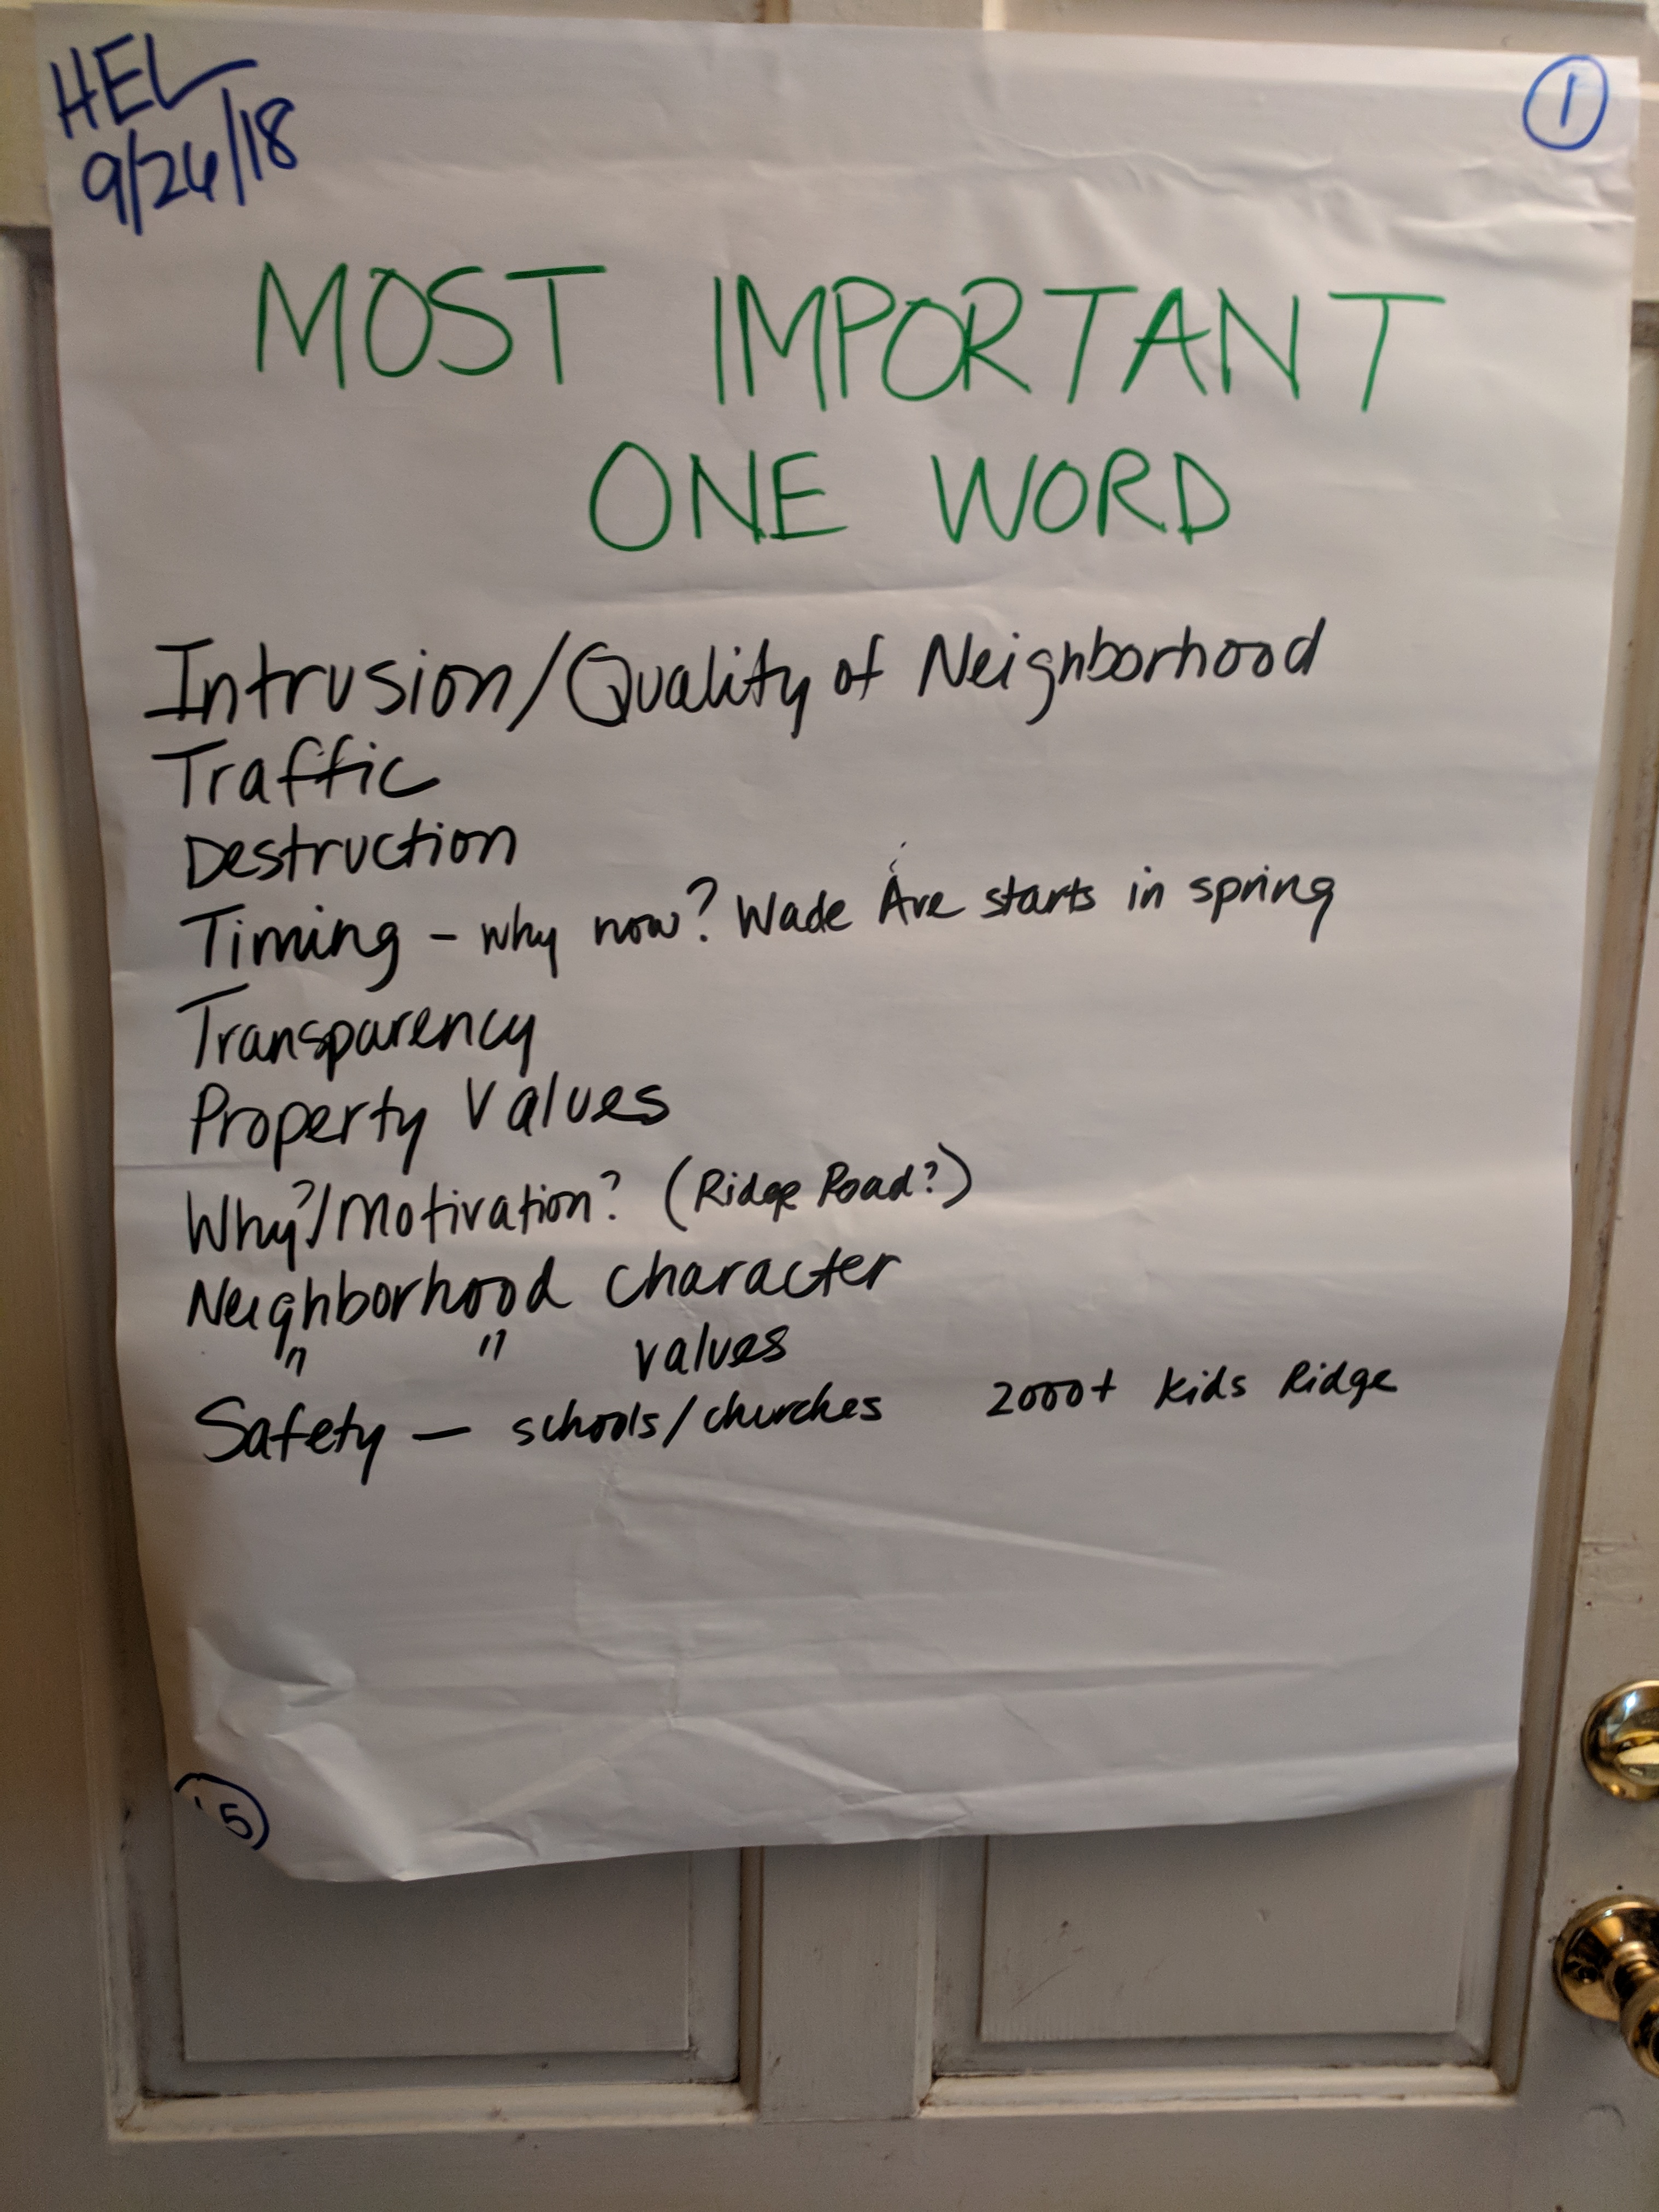 HEL
9/26/18
1
MOST IMPORTANT
ONE WORD
Intrusion/Quality of Neighborhood
Traffic
Destruction
Timing - why now? Wade Ave starts in spring
Transparency
Property Values
Why?/Motivation? (Ridge Road?)
Neighborhood character
" " values
Safety - schools/churches 2000+ kids Ridge
5